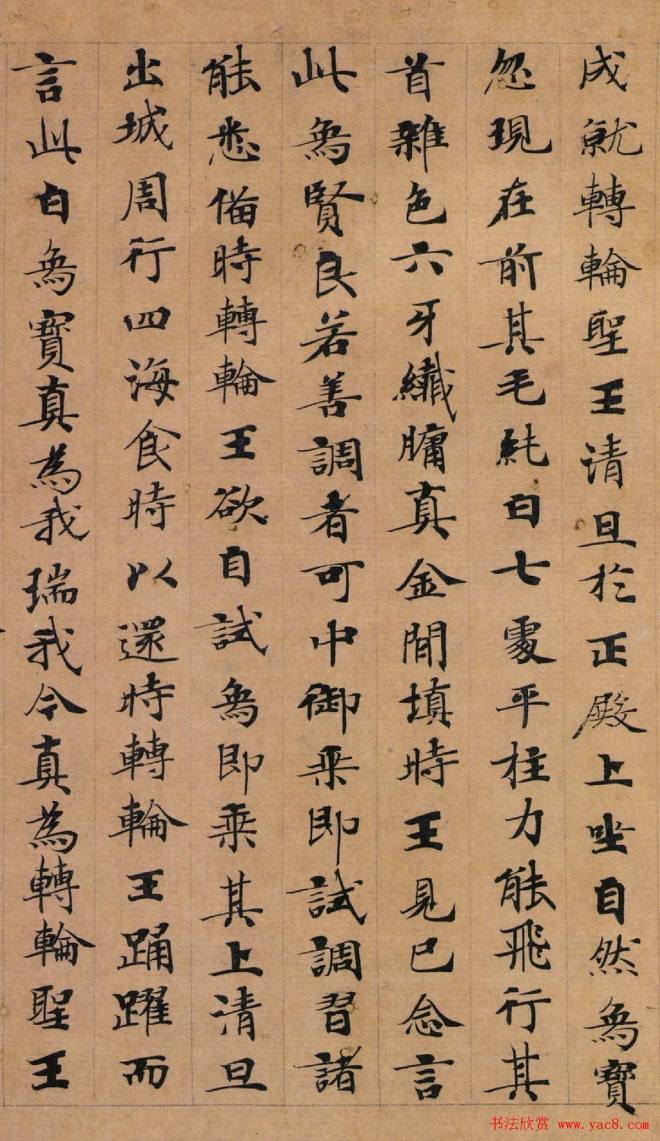 成就轉輪聖王清旦於正殿上坐自然象寶
忽現在前其毛純白七處平柱力能飛行其
首雜色六牙纖𦟛真金間填時王見已念言
此象賢良若善調者可中御乘即試調習諸
能悉備時轉輪王欲自試象即乘其上清旦
出城周行四海食時以還時轉輪王踊躍而
言此白象寶真為我瑞我今真為轉輪聖王
书法欣赏 www.yac8.com